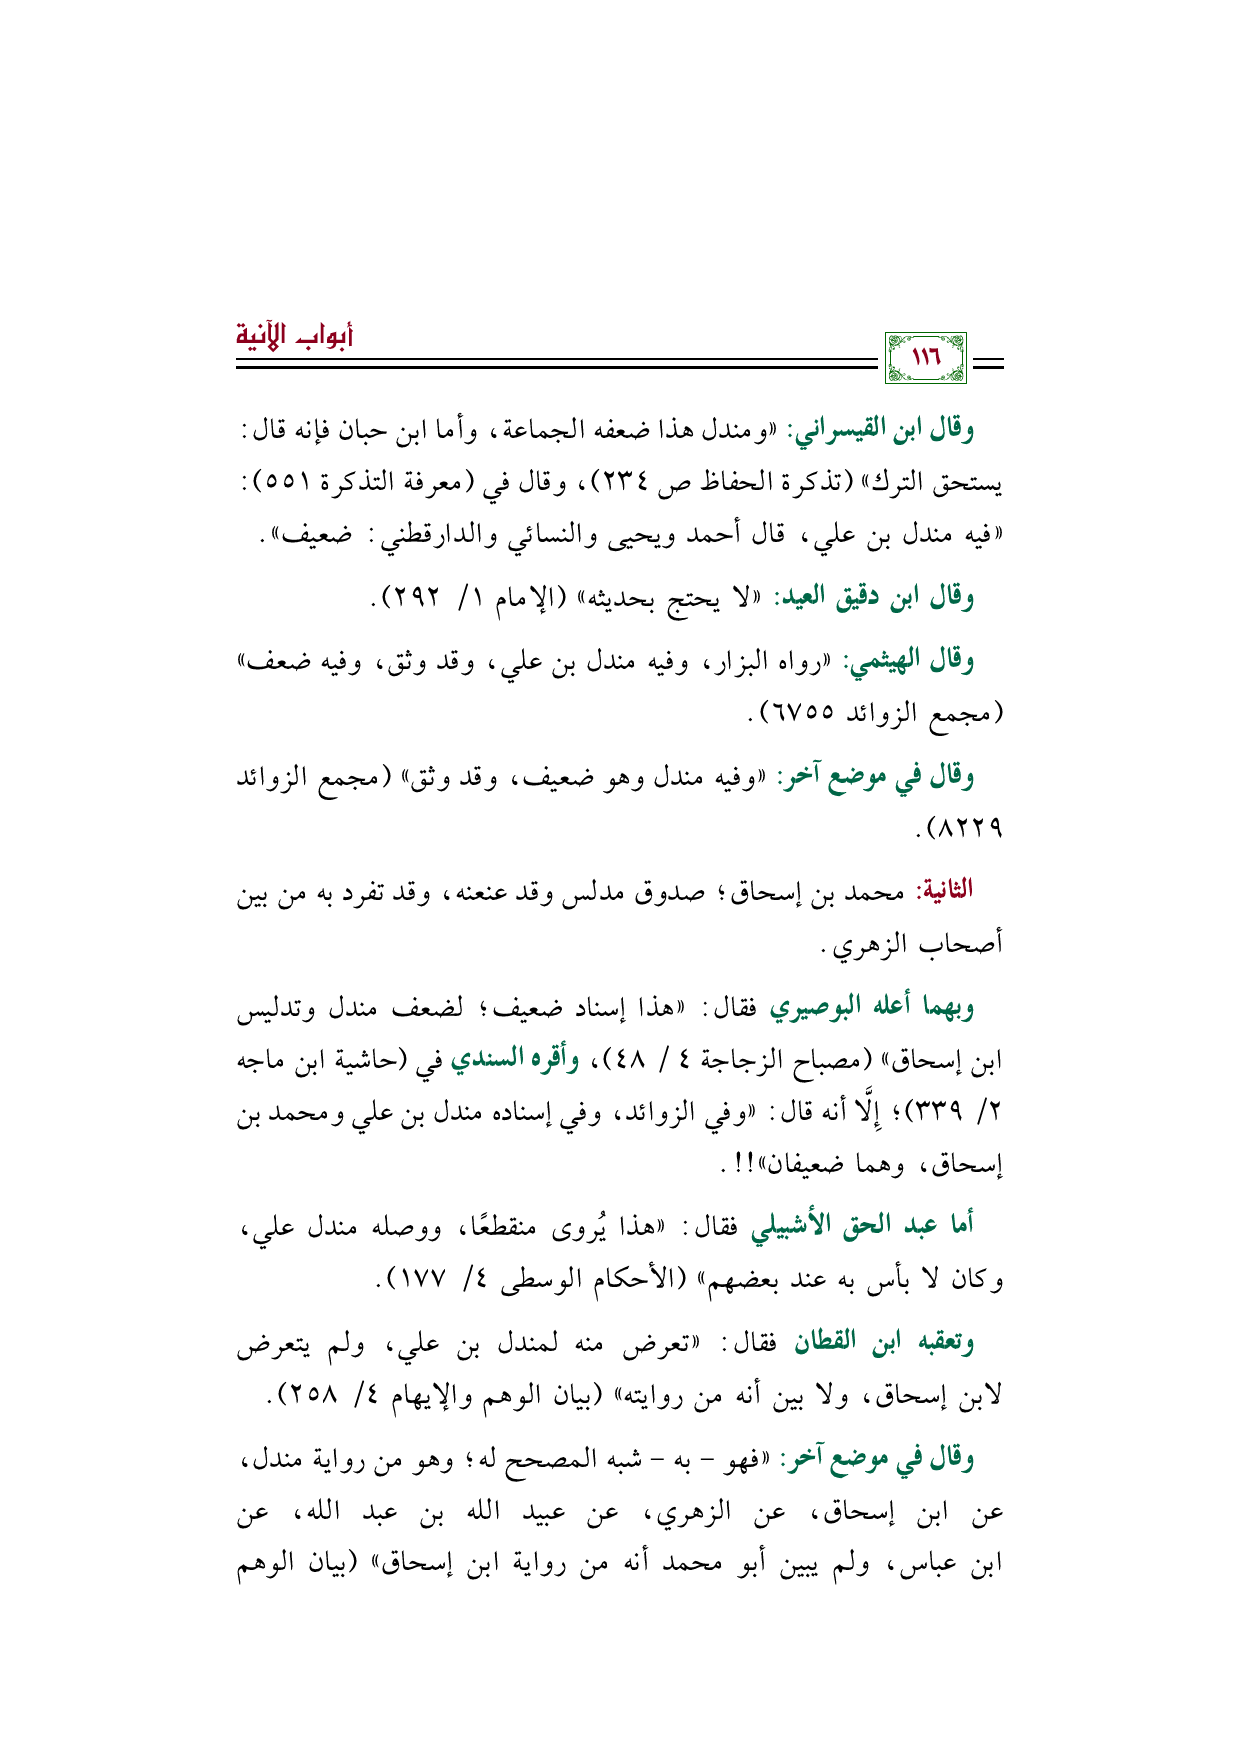 أبواب الآنية
١١٦
وقال ابن القيسراني: «ومندل هذا ضعفه الجماعة، وأما ابن حبان فإنه قال:
يستحق الترك» (تذكرة الحفاظ ص ٢٣٤)، وقال في (معرفة التذكرة ٥٥١):
«فيه مندل بن علي، قال أحمد ويحيى والنسائي والدارقطني: ضعيف».
وقال ابن دقيق العيد: «لا يحتج بحديثه» (الإمام ١/ ٢٩٢).
وقال الهيثمي: «رواه البزار، وفيه مندل بن علي، وقد وثق، وفيه ضعف»
(مجمع الزوائد ٦٧٥٥).
وقال في موضع آخر: «وفيه مندل وهو ضعيف، وقد وثق» (مجمع الزوائد
٨٢٢٩).
الثانية: محمد بن إسحاق؛ صدوق مدلس وقد عنعنه، وقد تفرد به من بين
أصحاب الزهري.
وبهما أعله البوصيري فقال: «هذا إسناد ضعيف؛ لضعف مندل وتدليس
ابن إسحاق» (مصباح الزجاجة ٤ / ٤٨)، وأقره السندي في (حاشية ابن ماجه
٢/ ٣٣٩)؛ إِلَّا أنه قال: «وفي الزوائد، وفي إسناده مندل بن علي ومحمد بن
إسحاق، وهما ضعيفان»!!.
أما عبد الحق الأشبيلي فقال: «هذا يُروى منقطعًا، ووصله مندل علي،
وكان لا بأس به عند بعضهم» (الأحكام الوسطى ٤/ ١٧٧).
وتعقبه ابن القطان فقال: «تعرض منه لمندل بن علي، ولم يتعرض
لابن إسحاق، ولا بين أنه من روايته» (بيان الوهم والإيهام ٤/ ٢٥٨).
وقال في موضع آخر: «فهو – به – شبه المصحح له؛ وهو من رواية مندل،
عن ابن إسحاق، عن الزهري، عن عبيد الله بن عبد الله، عن
ابن عباس، ولم يبين أبو محمد أنه من رواية ابن إسحاق» (بيان الوهم